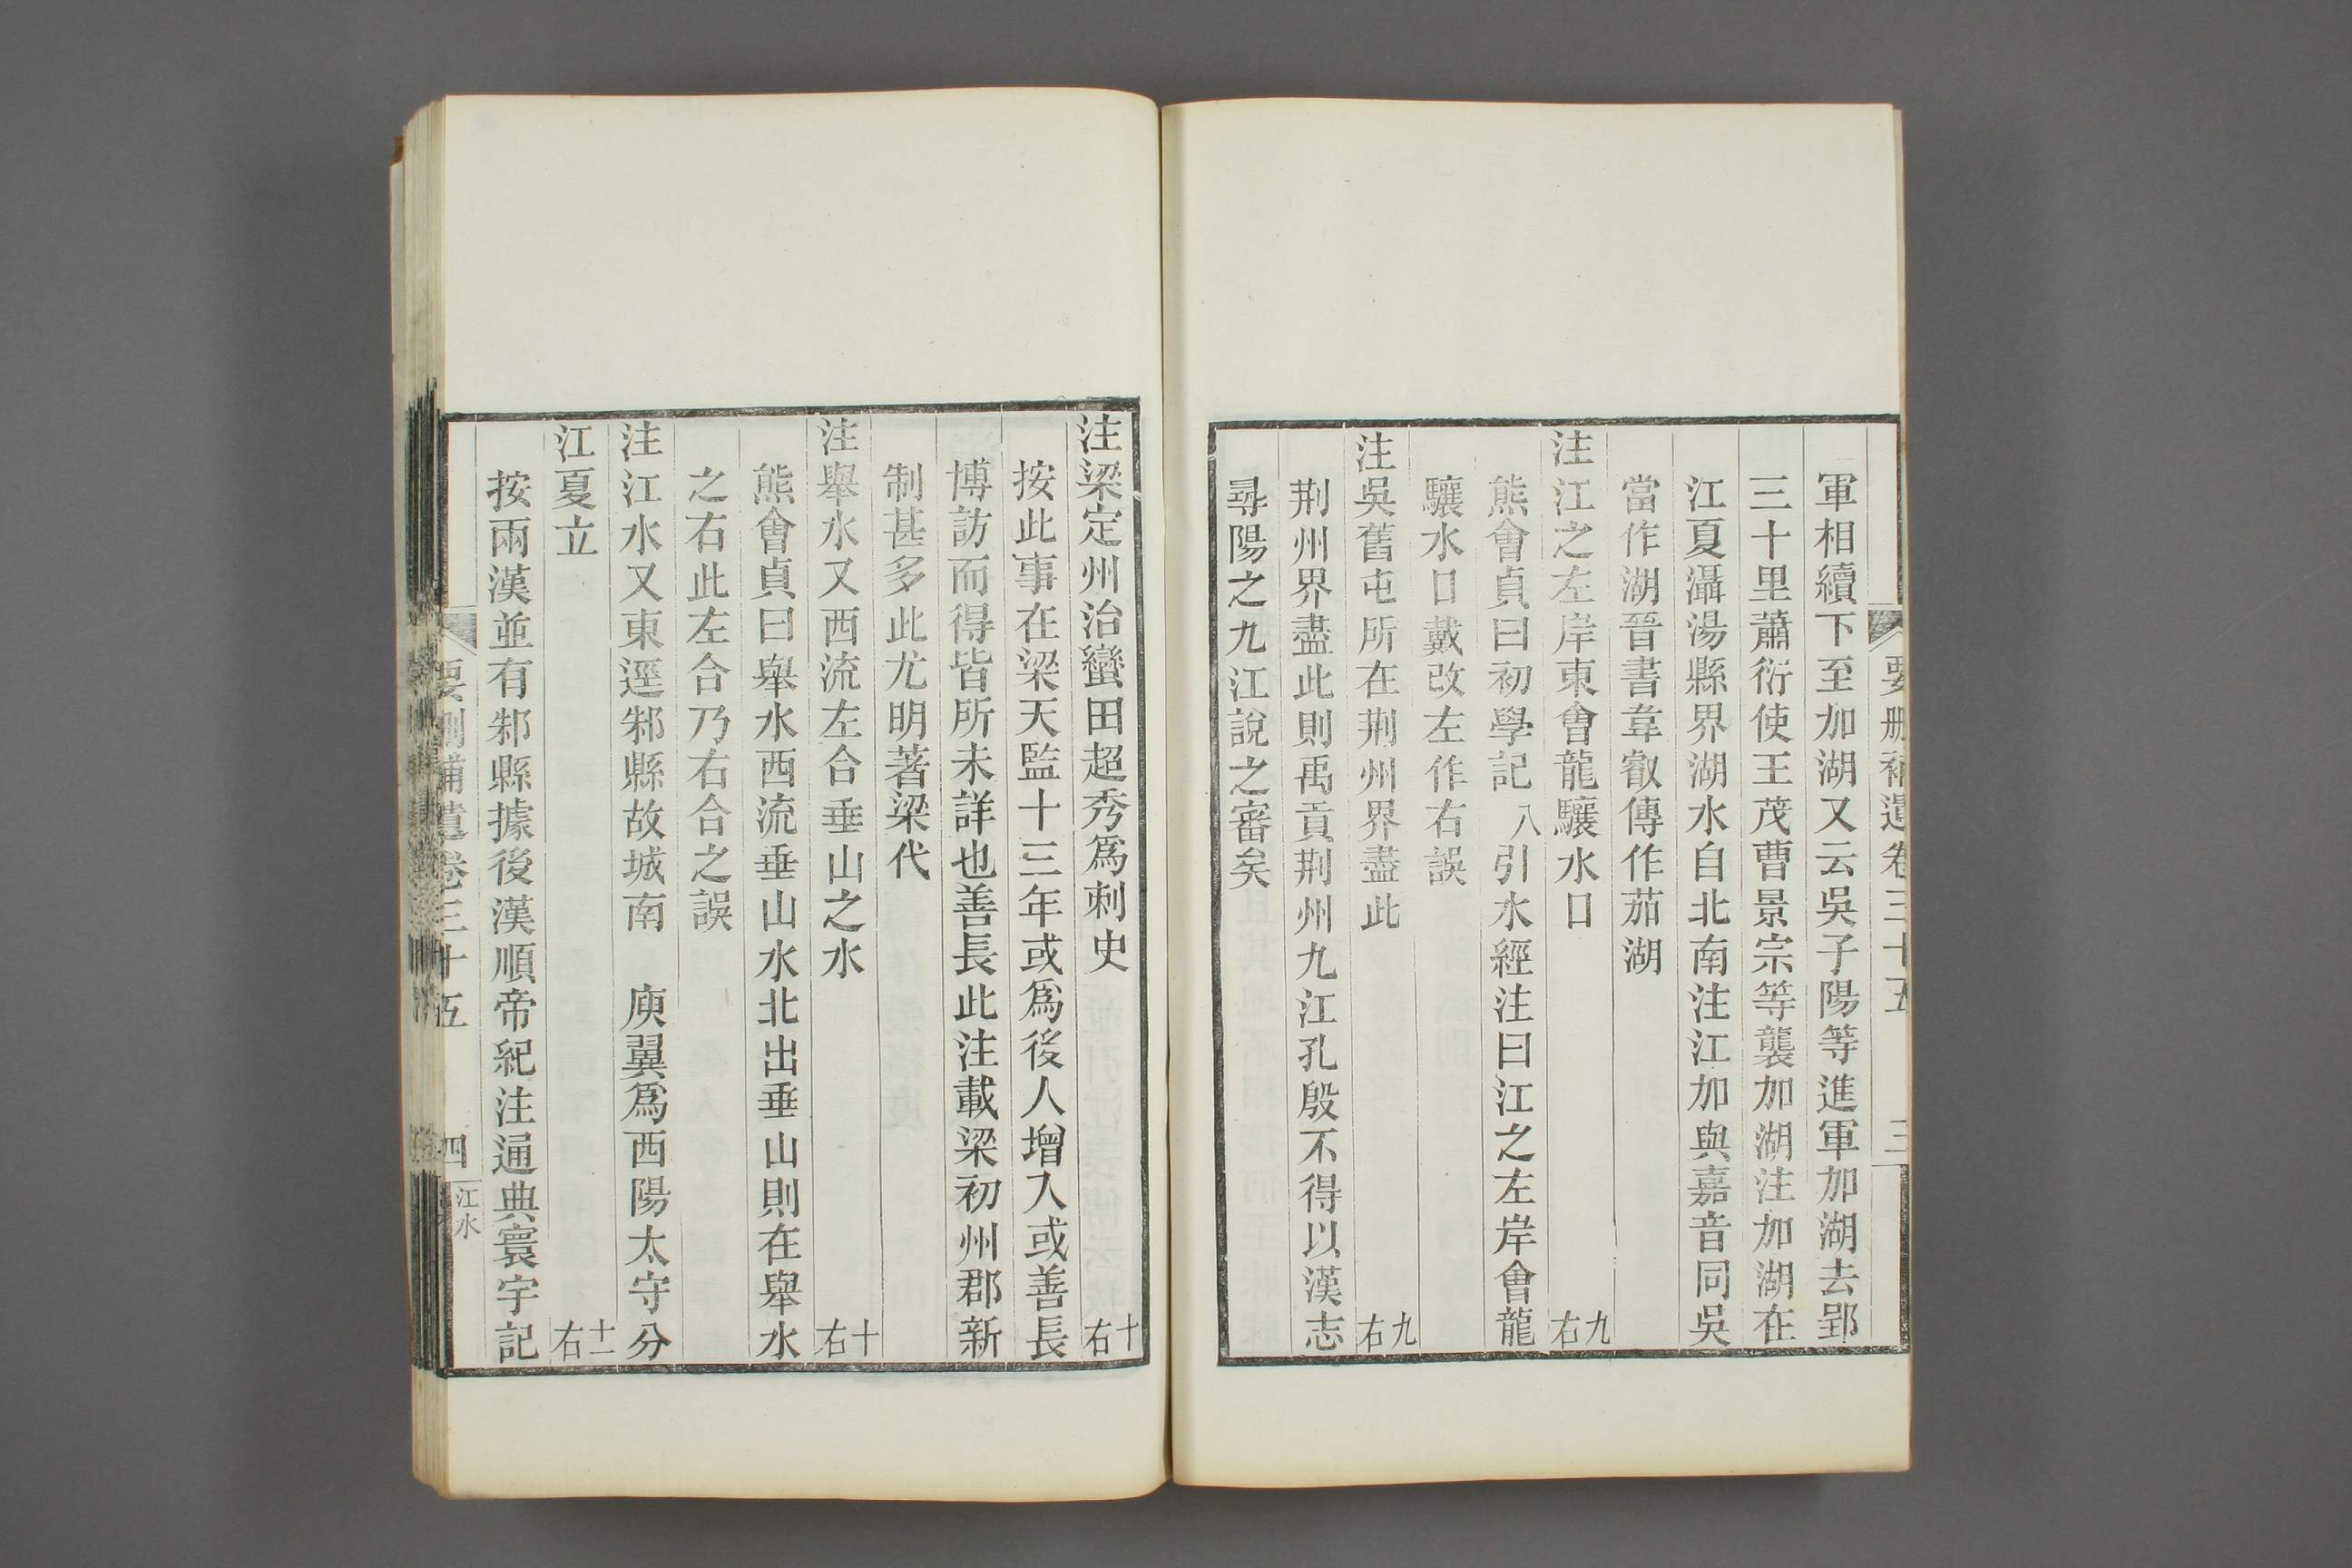 要刪補遺卷三十五 三
軍相續下至加湖又云吳子陽等進軍加湖去郢
三十里蕭衍使王茂曹景宗等襲加湖注加湖在
江夏灄湯縣界湖水自北南注江加與嘉音同吳
當作湖晉書韋叡傳作茄湖
注江之左岸東會龍驤水口 九右
熊會貞曰初學記八引水經注曰江之左岸會龍
驤水口戴改左作右誤
注吳舊屯所在荆州界盡此 九右
荆州界盡此則禹貢荆州九江孔殷不得以漢志
尋陽之九江說之審矣
注梁定州治蠻田超秀爲刺史 十右
按此事在梁天監十三年或爲後人增入或善長
博訪而得皆所未詳也善長此注載梁初州郡新
制甚多此尤明著梁代
注舉水又西流左合垂山之水 十右
熊會貞曰舉水西流垂山水北出垂山則在舉水
之右此左合乃右合之誤
注江水又東逕邾縣故城南 庾翼爲西陽太守分
江夏立 十一右
按兩漢並有邾縣據後漢順帝紀注通典寰宇記
要刪補遺卷三十五 四 江水